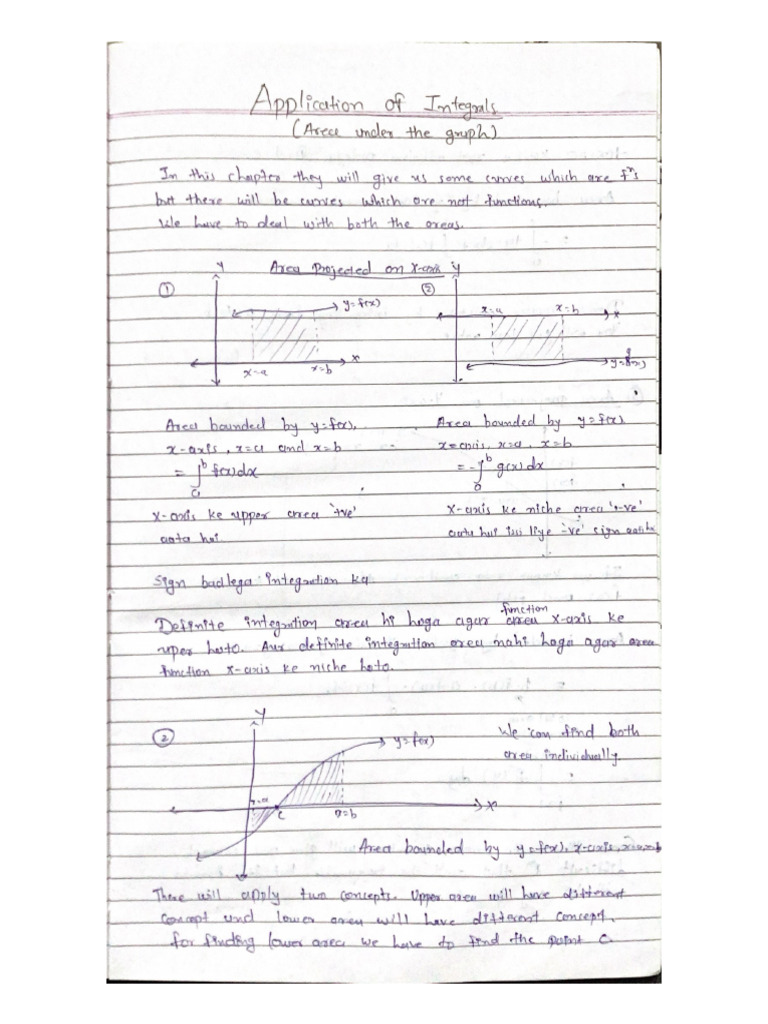 Application of Integrals
(Area under the graph)
In this chapter they will give us some curves which are fⁿs
but there will be curves which are not functions.
We have to deal with both the areas.
Area Projected on X-axis
① Y y=f(x) X x=a x=b
② Y x=a x=b X y=g(x)
Area bounded by y=f(x),
x-axis, x=a and x=b
= ∫ₐᵇ f(x)dx
X-axis ke upper area '+ve'
aata hai
Area bounded by y=f(x)
x=axis, x=a, x=b
= -∫ₐᵇ g(x)dx
X-axis ke niche area '-ve'
aata hai isi liye '-ve' sign
Sign badlega integration ka
function
Definite integration area hi hoga agar area X-axis ke
uper hoto. Aur definite integration area nahi hoga agar area
function X-axis ke niche hoto.
② Y y=f(x) x=a C x=b X
We can find both
area individually
Area bounded by y=f(x), x-axis, x=a, x=b
There will apply two concepts. Upper area will have different
concept and lower area will have different concept.
for finding lower area we have to find the point C